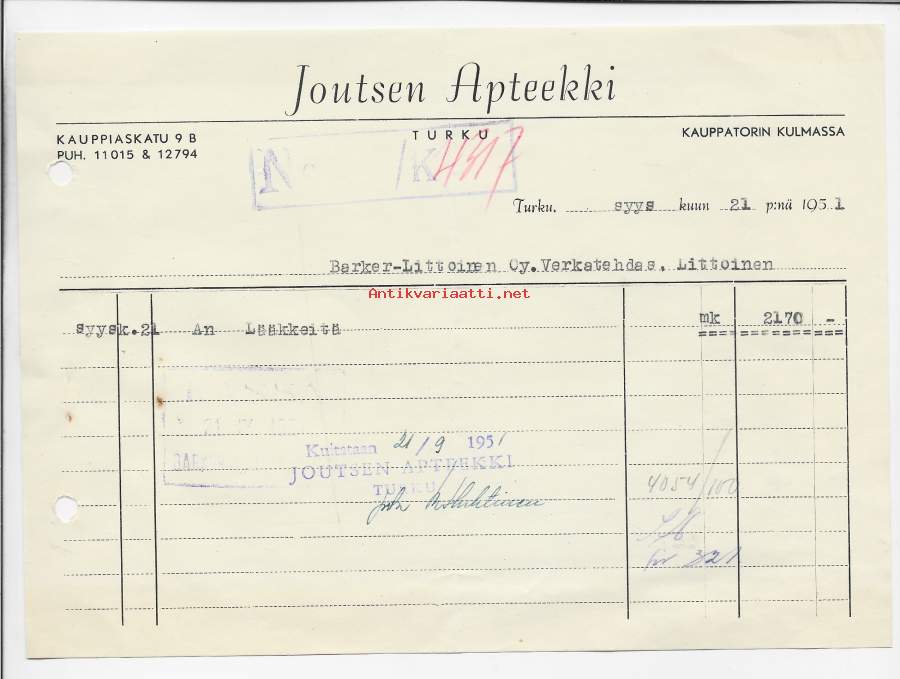 Joutsen Apteekki
KAUPPIASKATU 9 B
PUH. 11015 & 12794
TURKU
KAUPPATORIN KULMASSA
No /K 4317
Turku, syys kuun 21 p:nä 1951
Barker-Littoinen Oy. Verkatehdas, Littoinen
Antikvariaatti.net
syysk. 21 An Lääkkeitä mk 2170 -
Kuitataan 21/9 1951
JOUTSEN APTEEKKI
TURKU
4054/100
321